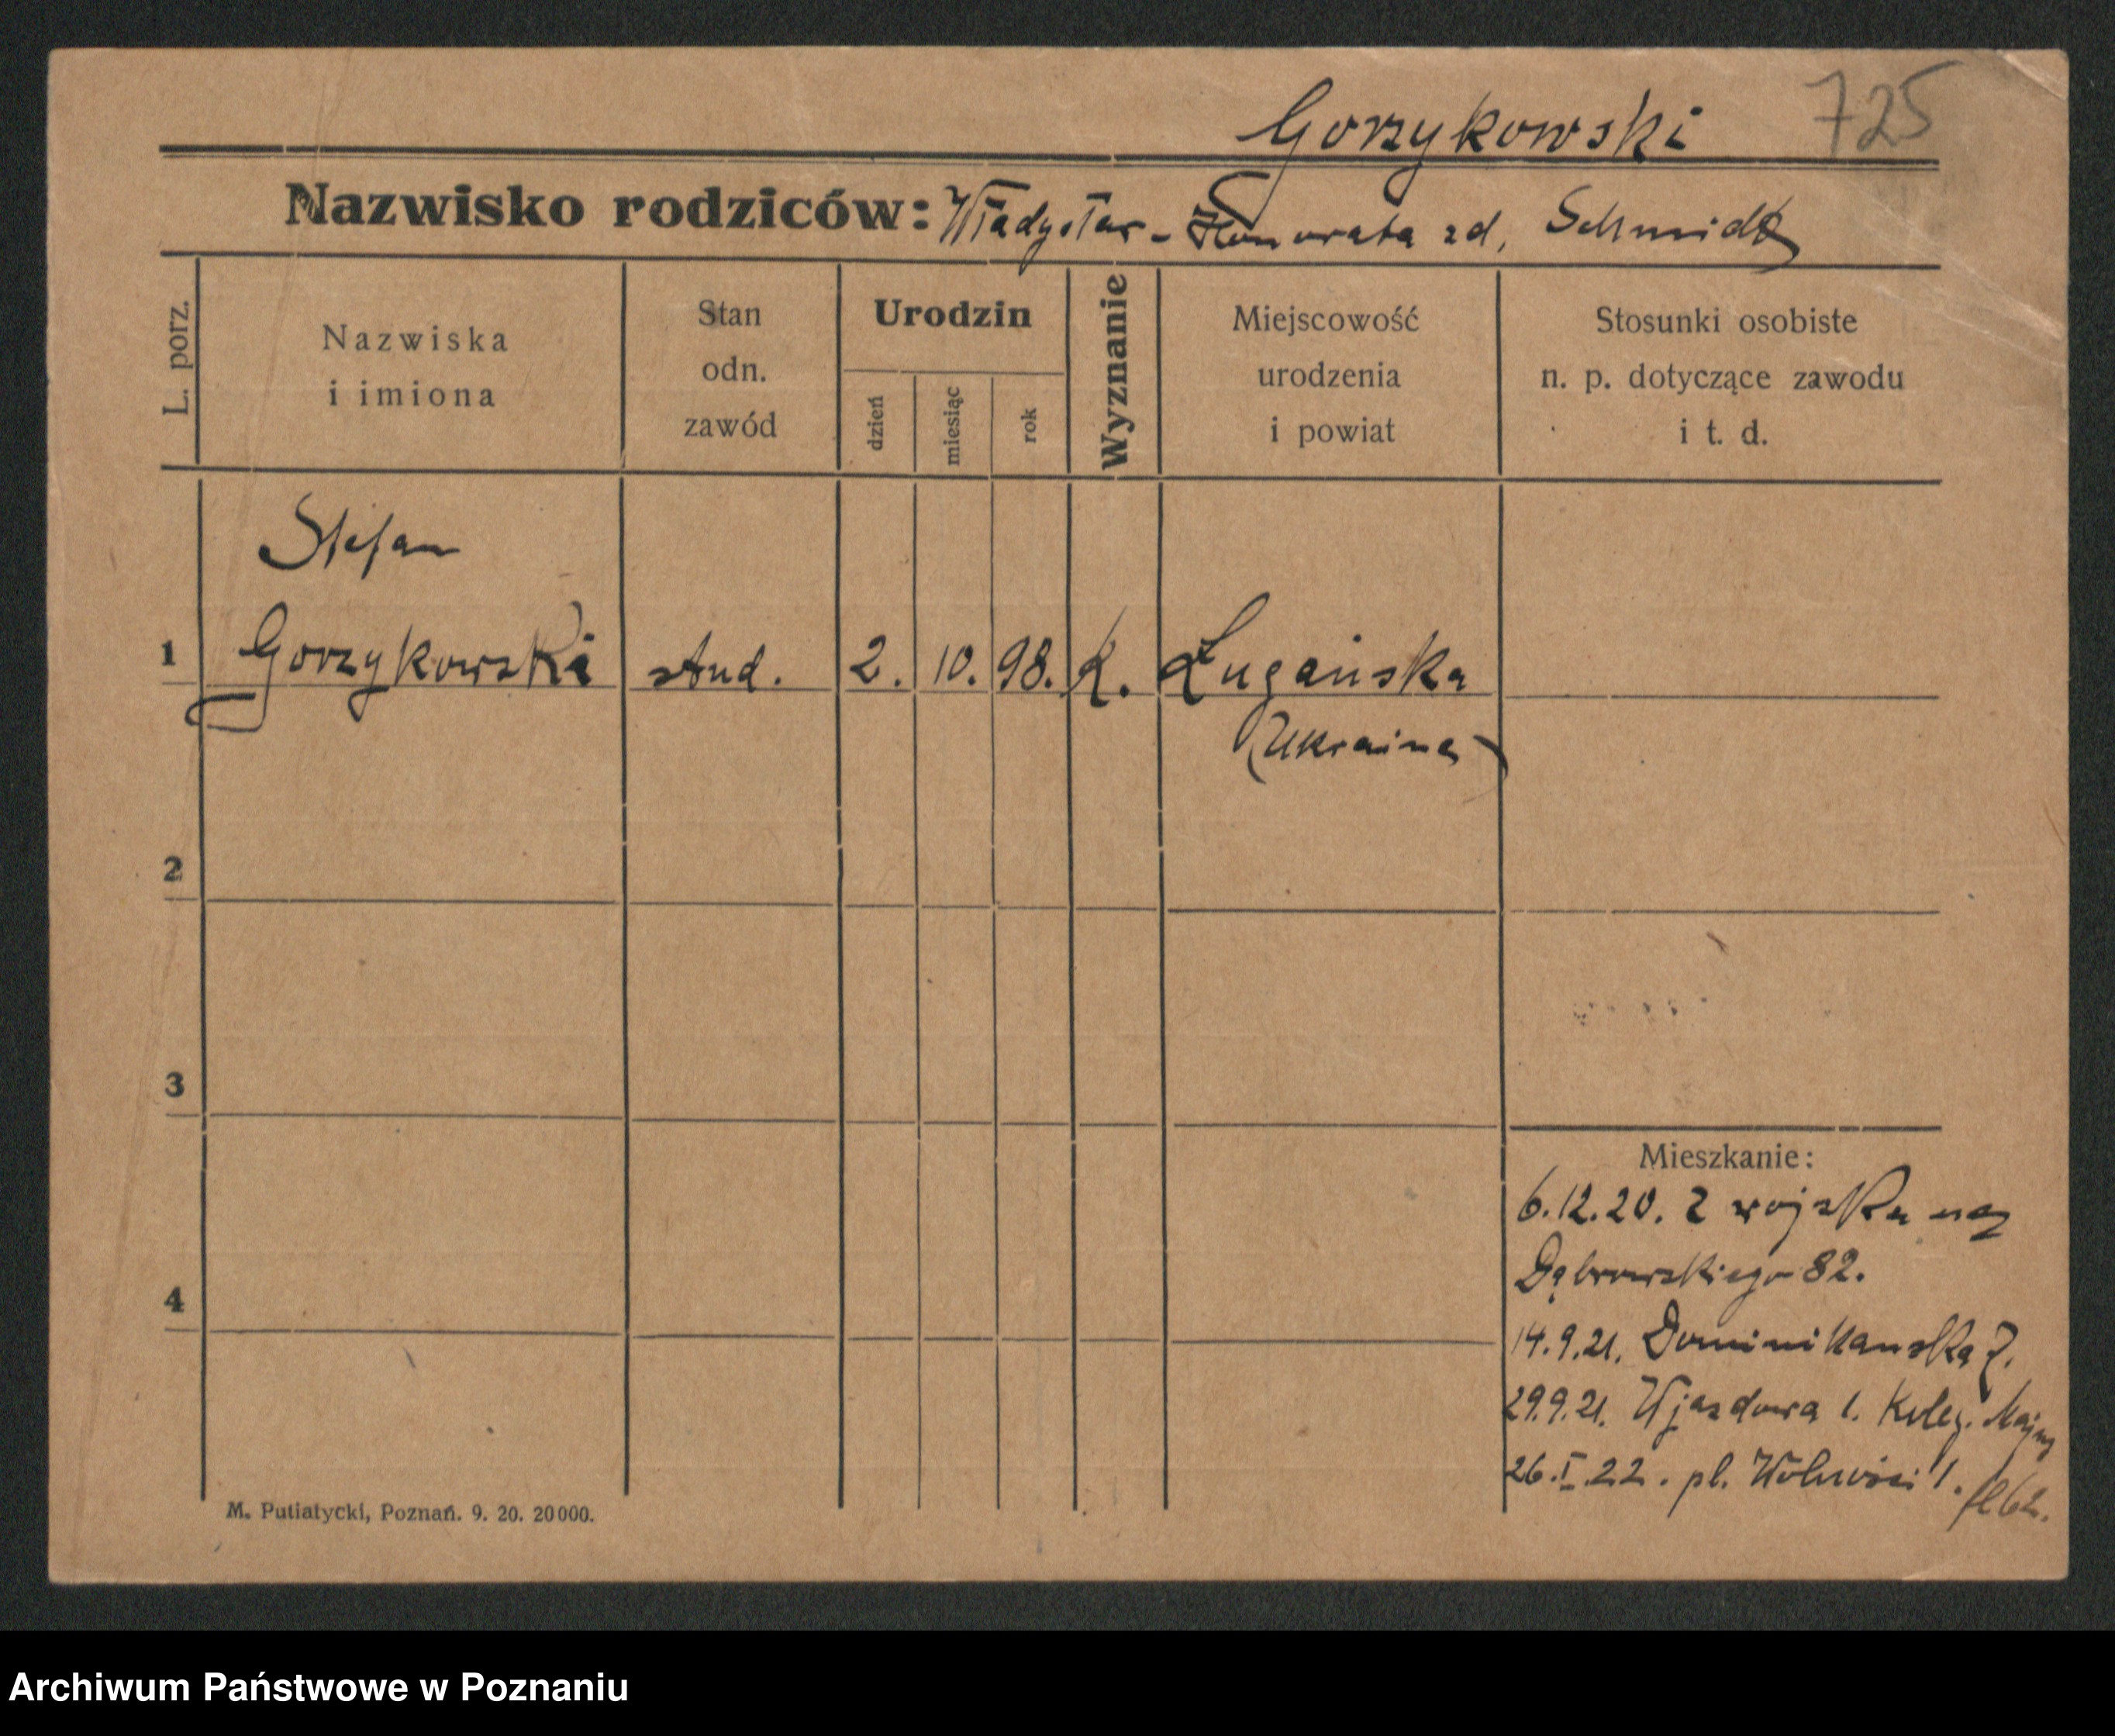 725
Gorzykowski
Nazwisko rodziców: Władysław - Honorata zd. Schmidt
L. porz.
Nazwiska
i imiona
Stan
odn.
zawód
Urodzin
dzień
miesiąc
rok
Wyznanie
Miejscowość
urodzenia
i powiat
Stosunki osobiste
n. p. dotyczące zawodu
i t. d.
Stefan
1 Gorzykowski stud. 2. 10. 98. K. Ługańska
(Ukraina)
2
3
4
Mieszkanie:
6.12.20. z wojska na
Dąbrowskiego 82.
14.9.21. Dominikańska 7.
29.9.21. Wjazdowa 1. Koleg.
26.I.22. pl. Wolności 1.
M. Putiatycki, Poznań. 9. 20. 20000.
Archiwum Państwowe w Poznaniu